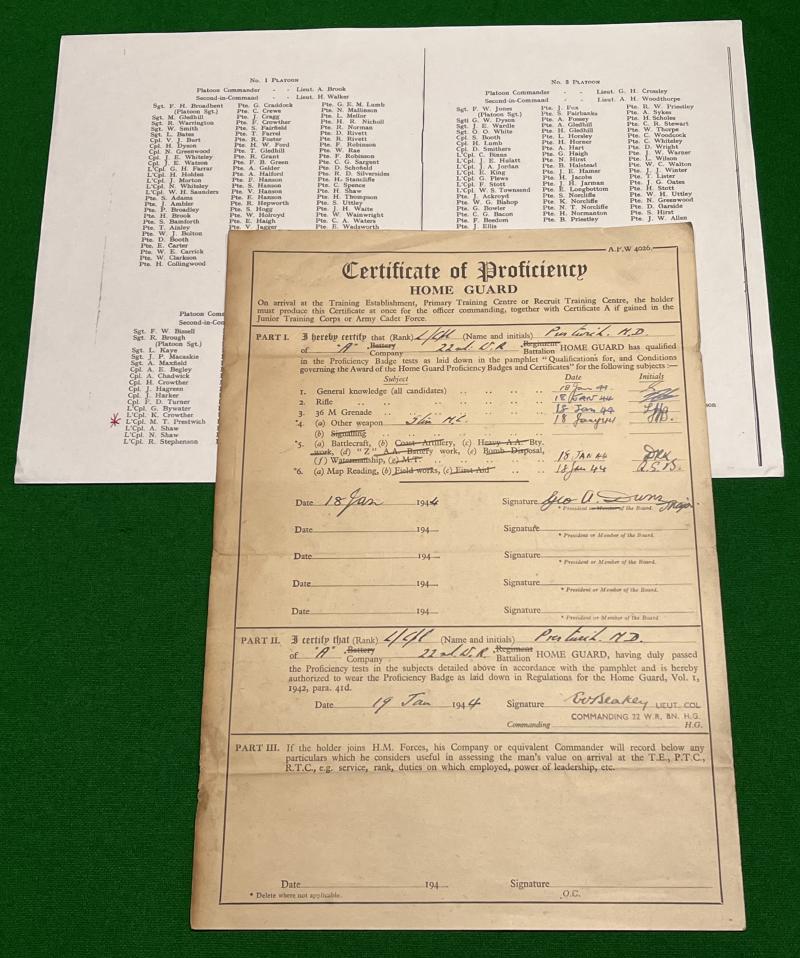 No. 1 PLATOON
Platoon Commander - - Lieut. A. Brook
Second-in-Command - - Lieut. H. Walker
Sgt. F. H. Broadbent
(Platoon Sgt.)
Sgt. M. Gledhill
Sgt. R. Warrington
Sgt. W. Smith
Sgt. L. Bates
Cpl. V. J. Burt
Cpl. H. Dyson
Cpl. N. Greenwood
Cpl. J. E. Whiteley
Cpl. J. E. Watson
L'Cpl. G. H. Farrar
L'Cpl. H. Holden
L'Cpl. J. Morton
L'Cpl. N. Whiteley
L'Cpl. W. H. Saunders
Pte. S. Adams
Pte. J. Ambler
Pte. P. Broadley
Pte. H. Brook
Pte. S. Bamforth
Pte. T. Ainley
Pte. W. J. Bolton
Pte. D. Booth
Pte. E. Carter
Pte. W. E. Carrick
Pte. W. Clarkson
Pte. H. Collingwood
Pte. G. Craddock
Pte. C. Crewe
Pte. J. Cragg
Pte. F. Crowther
Pte. S. Fairfield
Pte. T. Farrel
Pte. R. Foster
Pte. H. W. Ford
Pte. T. Gledhill
Pte. R. Grant
Pte. F. B. Green
Pte. A. Gelder
Pte. A. Halford
Pte. F. Hanson
Pte. S. Hanson
Pte. V. Hanson
Pte. E. Hanson
Pte. R. Hepworth
Pte. S. Hogg
Pte. W. Holroyd
Pte. E. Haigh
Pte. V. Jagger
Pte. G. E. M. Lumb
Pte. N. Mallinson
Pte. L. Mellor
Pte. H. R. Nicholl
Pte. R. Norman
Pte. D. Rivett
Pte. R. Rivett
Pte. F. Robinson
Pte. W. Rae
Pte. F. Robinson
Pte. C. G. Sargent
Pte. D. Schofield
Pte. R. D. Silversides
Pte. H. Stancliffe
Pte. C. Spence
Pte. H. Shaw
Pte. H. Thompson
Pte. S. Uttley
Pte. J. H. Waite
Pte. W. Wainwright
Pte. C. A. Waters
Pte. E. Wadsworth
No. 3 PLATOON
Platoon Commander - - Lieut. G. H. Crossley
Second-in-Command - - Lieut. A. H. Woodthorpe
Sgt. F. W. Jones
(Platoon Sgt.)
Sgt G. W. Dyson
Sgt. J. E. Wardle
Sgt. O. O. White
Cpl. S. Booth
Cpl. H. Lumb
Cpl. D. Smithers
L'Cpl. C. Binns
L'Cpl. J. E. Hulatt
L'Cpl. J. A. Jorlan
L'Cpl. E. King
L'Cpl. G. Plews
L'Cpl. F. Stott
L'Cpl. W. S. Townsend
Pte. J. Ackroyd
Pte. W. G. Bishop
Pte. G. Bowler
Pte. C. G. Bacon
Pte. F. Beedom
Pte. J. Ellis
Pte. J. Fox
Pte. S. Fairbanks
Pte. A. Fossey
Pte. A. Gledhill
Pte. H. Gledhill
Pte. L. Horsley
Pte. H. Horner
Pte. A. Hart
Pte. G. Haigh
Pte. N. Hirst
Pte. B. Halstead
Pte. J. E. Hamer
Pte. H. Jacobs
Pte. J. H. Jarman
Pte. E. Longbottom
Pte. S. Norcliffe
Pte. K. Norcliffe
Pte. N. T. Norcliffe
Pte. H. Normanton
Pte. B. Priestley
Pte. R. W. Priestley
Pte. A. Sykes
Pte. H. Scholes
Pte. C. R. Stewart
Pte. W. Thorpe
Pte. C. Woodcock
Pte. C. Whiteley
Pte. D. Wright
Pte. J. W. Warner
Pte. L. Wilson
Pte. W. C. Walton
Pte. J. J. Winter
Pte. T. Lister
Pte. J. G. Oates
Pte. H. Stott
Pte. W. H. Uttley
Pte. N. Greenwood
Pte. D. Garside
Pte. S. Hirst
Pte. J. W. Allen
Platoon Comm
Second-in-C
Sgt. F. W. Bissell
Sgt. R. Brough
(Platoon Sgt.)
Sgt. L. Kaye
Sgt. J. P. Macaskie
Sgt. A. Maxfield
Cpl. A. E. Begley
Cpl. A. Chadwick
Cpl. H. Crowther
Cpl. J. Hagreen
Cpl. J. Harker
Cpl. F. D. Turner
L'Cpl. G. Bywater
L'Cpl. K. Crowther
L'Cpl. M. T. Prestwich
L'Cpl. A. Shaw
L'Cpl. N. Shaw
L'Cpl. R. Stephenson
A.F.W 4026.
Certificate of Proficiency
HOME GUARD
On arrival at the Training Establishment, Primary Training Centre or Recruit Training Centre, the holder
must produce this Certificate at once for the officer commanding, together with Certificate A if gained in the
Junior Training Corps or Army Cadet Force.
PART I. I hereby certify that (Rank) L/Cpl (Name and initials) Prestwich. M.D.
of "A" Battery Company 22nd W.R. Regiment Battalion HOME GUARD has qualified
in the Proficiency Badge tests as laid down in the pamphlet "Qualifications for, and Conditions
governing the Award of the Home Guard Proficiency Badges and Certificates" for the following subjects :—
Subject Date Initials
1. General knowledge (all candidates) 18 Jan 44
2. Rifle 18 JAN 44
3. 36 M Grenade 18 Jan 44
*4. (a) Other weapon Sten M.C. 18 Jany 44
(b) Signalling
*5. (a) Battlecraft, (b) Coast Artillery, (c) Heavy A.A. Bty.
work, (d) "Z" A.A. Battery work, (e) Bomb Disposal,
(f) Watermanship, (g) M.T. 18 JAN 44
*6. (a) Map Reading, (b) Field works, (c) First Aid 18 Jan 44
Date 18 Jan 1944 Signature Geo A. Dunn Major
* President or Member of the Board.
Date 194 Signature
* President or Member of the Board.
Date 194 Signature
* President or Member of the Board.
Date 194 Signature
* President or Member of the Board.
Date 194 Signature
* President or Member of the Board.
PART II. I certify that (Rank) L/Cpl (Name and initials) Prestwich. M.D.
of "A" Battery Company 22nd W.R. Regiment Battalion HOME GUARD, having duly passed
the Proficiency tests in the subjects detailed above in accordance with the pamphlet and is hereby
authorized to wear the Proficiency Badge as laid down in Regulations for the Home Guard, Vol. 1,
1942, para. 41d.
Date 19 Jan 1944 Signature LIEUT. COL
COMMANDING 22 W.R. BN. H.G.
Commanding H.G.
PART III. If the holder joins H.M. Forces, his Company or equivalent Commander will record below any
particulars which he considers useful in assessing the man's value on arrival at the T.E., P.T.C.,
R.T.C., e.g. service, rank, duties on which employed, power of leadership, etc.
Date 194 Signature
* Delete where not applicable. O.C.